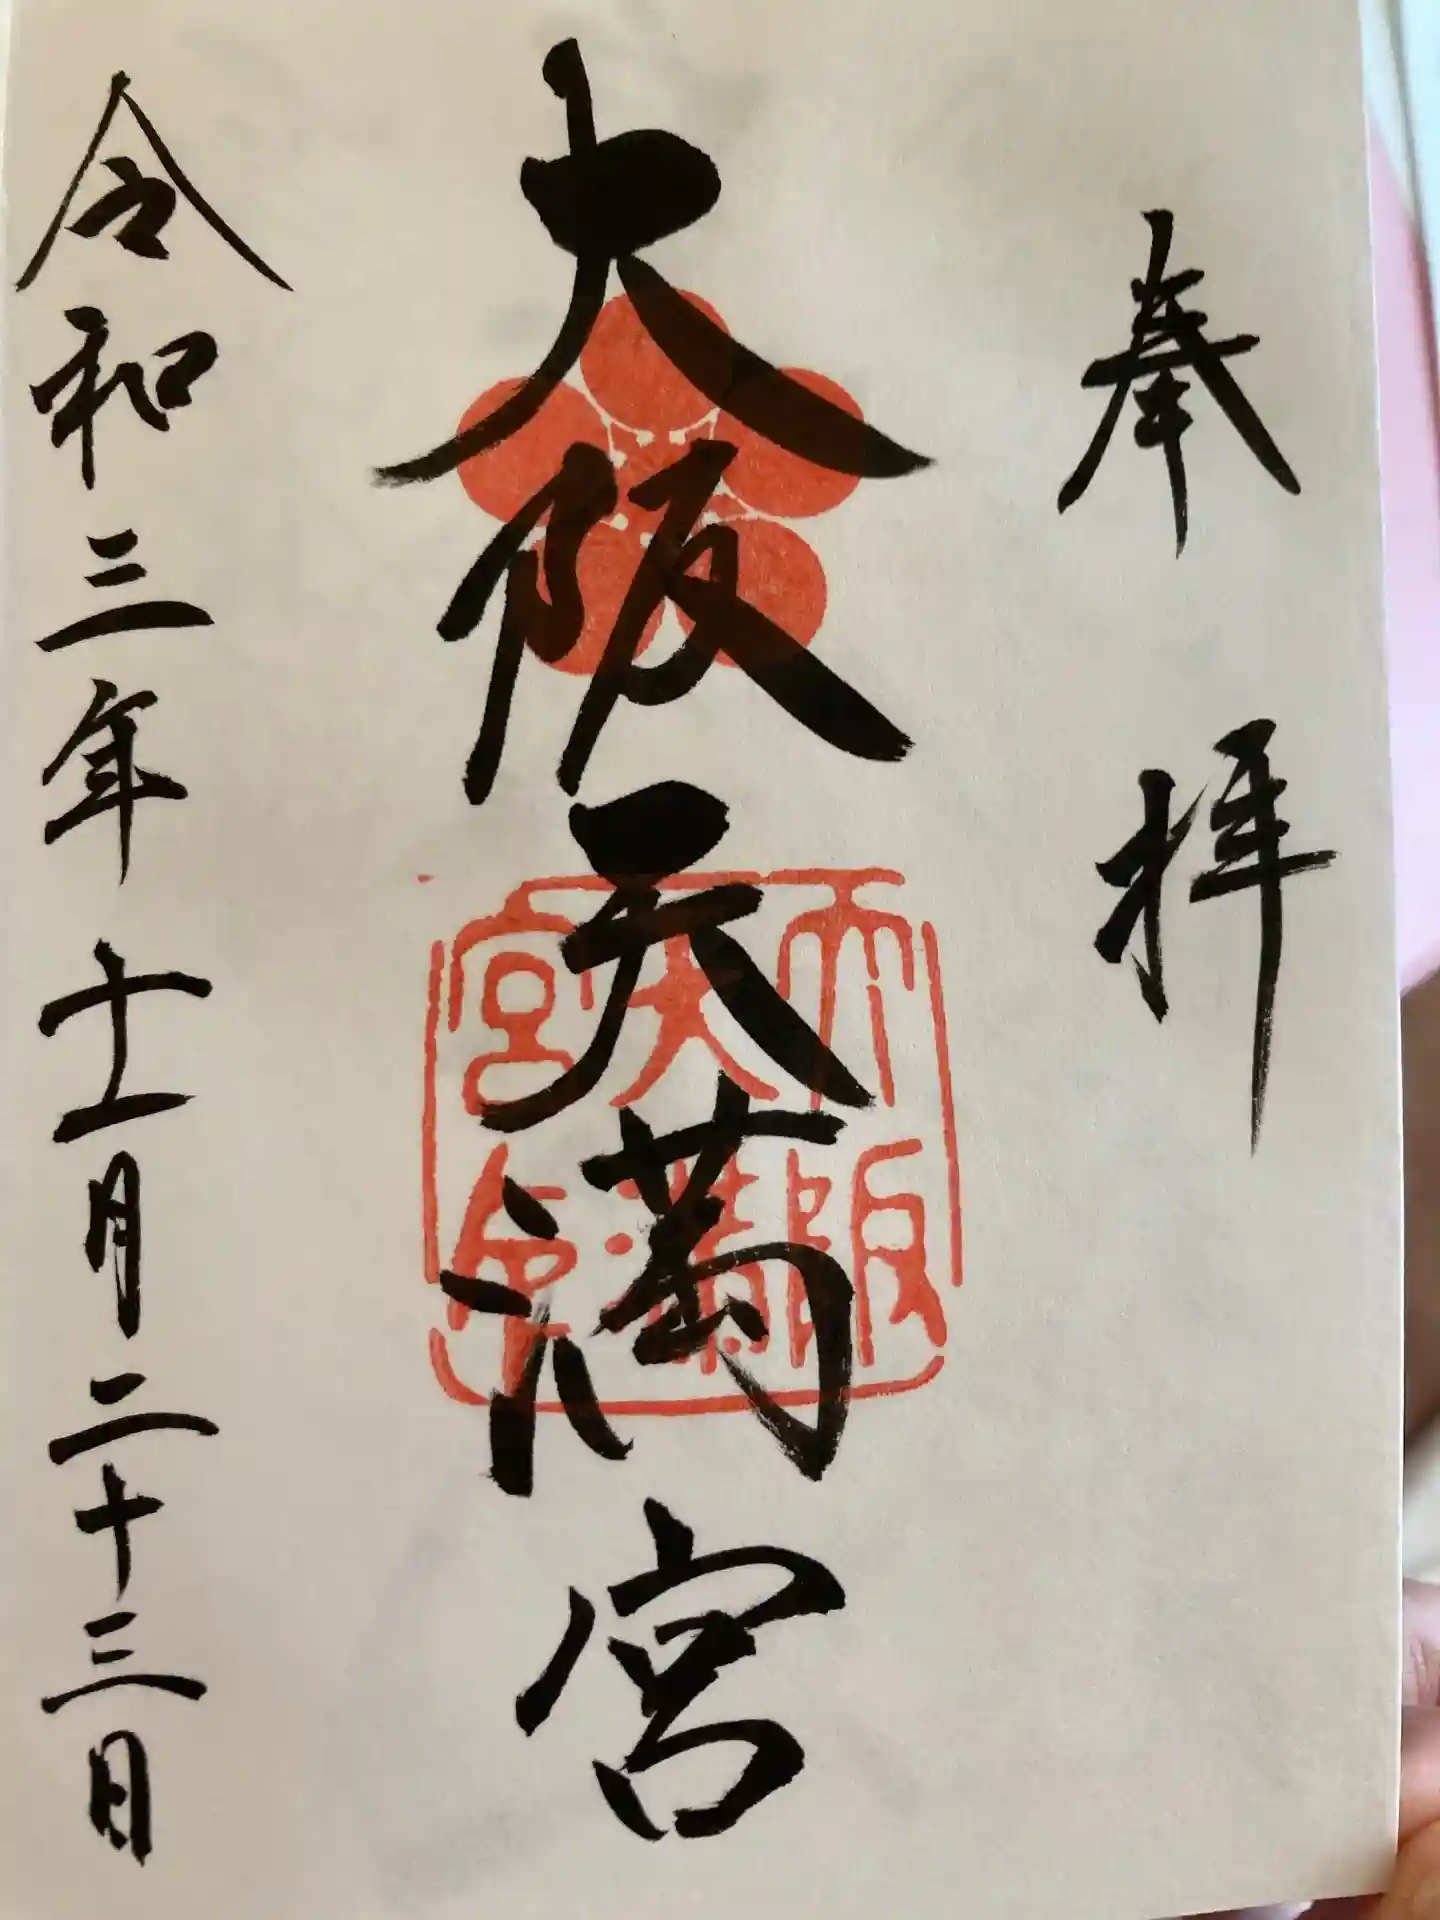 奉拝
大阪天満宮
大阪
天満
宮
令和三年十一月二十三日